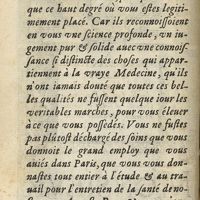 que ce haut degré où vous estes legitime-
mement placé. Car ils reconnoissoient
en vous vne science profonde, vn iu-
gement pur & solide auec vne connois-
sance si distincte des choses qui appar-
tiennent à la vraye Medecine, qu'ils
n'ont iamais douté que toutes ces bel-
les qualités ne fussent quelque iour les
veritables marches, pour vous éleuer
à ce que vous possedés. Vous ne fustes
pas plûtost déchargé des soins que vous
donnoit le grand employ que vous
auiés dans Paris, que vous vous don-
nastes tout entier à l'étude & au tra-
uail pour l'entretien de la santé de no-